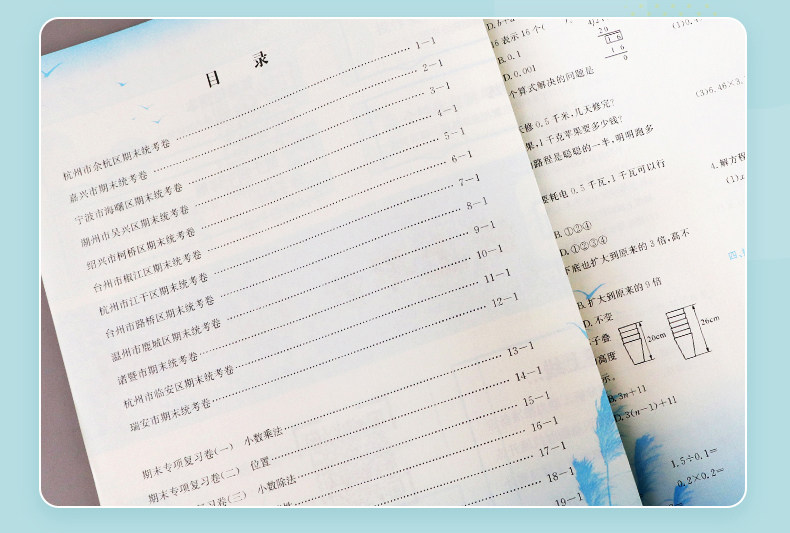 目 录
杭州市余杭区期末统考卷 1-1
嘉兴市期末统考卷 2-1
宁波市海曙区期末统考卷 3-1
湖州市吴兴区期末统考卷 4-1
绍兴市柯桥区期末统考卷 5-1
台州市椒江区期末统考卷 6-1
杭州市江干区期末统考卷 7-1
台州市路桥区期末统考卷 8-1
温州市鹿城区期末统考卷 9-1
诸暨市期末统考卷 10-1
杭州市临安区期末统考卷 11-1
瑞安市期末统考卷 12-1
期末专项复习卷(一) 小数乘法 13-1
期末专项复习卷(二) 位置 14-1
复习卷(三) 小数除法 15-1
16-1
17-1
18-1
19-1
16表示16个(
B. 0.1
D. 0.001
个算式解决的问题是
修0.5千米,几天修完?
果,1千克苹果要多少钱?
路程是聪聪的一半,明明跑多
要耗电0.5千瓦,1千瓦可以行
B. ①②④
D. ①②③④
下底也扩大到原来的3倍,高不
B. 扩大到原来的9倍
D. 不变
子叠
高度
示。
20cm
26cm
B. 3n+11
D. 3(n-1)+11
(3)6.48×3.
4. 解方程
(1)x
1.5÷0.1=
0.2×0.2=